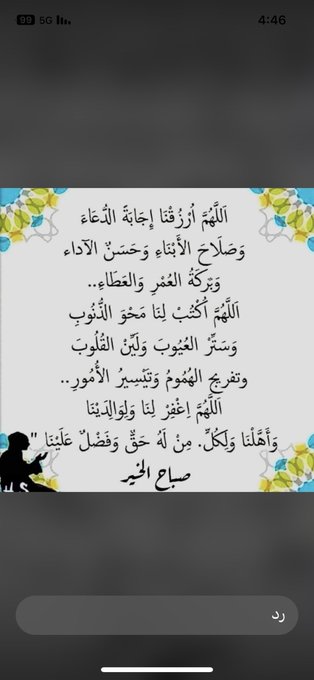 99 5G 4:46
اَللَّهُمَّ اُرْزُقْنَا إِجَابَةً الدُّعَاءَ
وَصَلَاحَ الأَبْنَاءِ وَحَسَنٌ الآداء
وَبَرَكَةُ العُمْرِ وَالعَطَاءِ..
اَللَّهُمَّ اُكْتُبْ لِنَا مَحْوَ الذُّنُوبِ
وَسَتِّرْ العُيُوبَ وَلَيِّنْ القُلُوبَ
وتفريج الهُمُومُ وَتَيْسِيرُ الأُمُورِ..
اَللَّهُمَّ اِغْفِرْ لِنَا وَلِوَالِدَيْنَا
وَأَهَّلْنَا وَلِكُلِّ. مِنْ لَهُ حَقٌّ وَفَضْلٌ عَلَيْنَا "
صباح الخير
رد